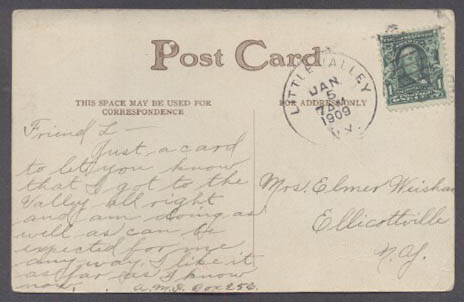 Post Card
THIS SPACE MAY BE USED FOR
CORRESPONDENCE
FOR ADDRESS ONLY
LITTLE VALLEY
JAN
5
7 AM
1909
N.Y.
1
CENTS
Friend L—
Just a card
to let you know
that I got to the
Valley all right
and am doing as
well as can be
expected for me
any way. I like it
as far as I know
now. A.M.D. Box 256.
Mrs. Elmer
Ellicottville
N.Y.